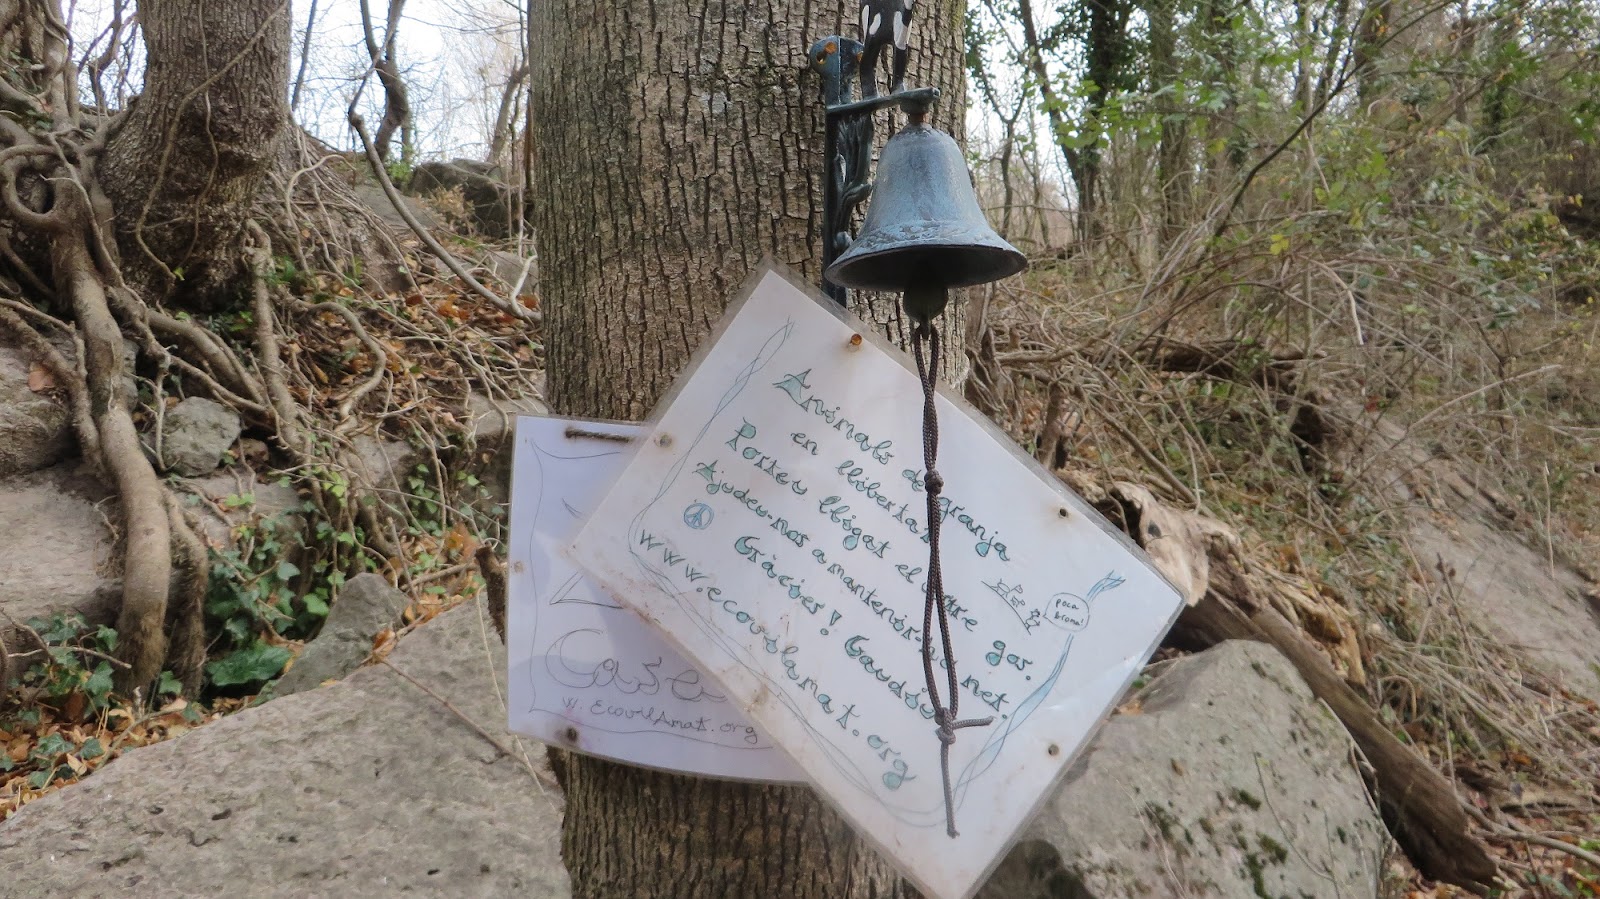 Animals de granja
en llibertat
Porteu lligat el vostre gos.
Ajudeu-nos a mantenir-ho net.
Gràcies! Gaudiu
www.ecovilamat.org
Poca
broma!
w.EcoviLAmaT.org